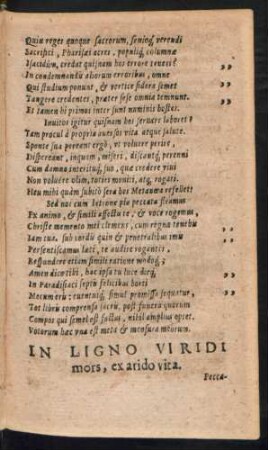 Quin reges quoque sacrorum, senioq́; verendi
Sacrifici, Pharisæi acres, populiq́; columnæ
Isacidûm, credat quisnam hos errore teneri?
In condemnandis aliorum erroribus, omne
Qui studium ponunt, & vertice sidera semet
Tangere credentes, præter sese omnia temnunt.
Et tamen hi primos inter sunt numinis hostes.
Invitos igitur quisnam hos servare laboret?
Tam procul à propria aversos vita atque salute.
Sponte sua pereant ergò, ut voluere perire,
Dispereant, inquam, miseri, discantq́; perenni
Cum damno interitusq́; sui, quæ credere vivi
Non voluere olim, toties moniti, atq́; rogati.
Heu mihi quàm subitò sera hos Metanœa refellet!
Sed nos cum latrone piu peccata fleamus
Ex animo, & simili affectu te, & voce rogemus,
Christe memento mei clemens, cum regna tenebis
Iam tua. sub cordis quin & penetralibus imis
Persentiscamus læti, te audire rogantes,
Respondere etiam simili ratione
Amen dico tibi, hac ipsa tu luce
In Paradisiaci septis felicibus horti
Mecum eris: tuentuiq́; simul promisso sequatur,
Tot libris comprensa sacris, post funera quorum
Compos qui semel est factus, nihil amplius optet.
Votorum hæc una est meta & mensura meorum.
IN LIGNO VIRIDI
mors, ex arido vita.
Pecca-